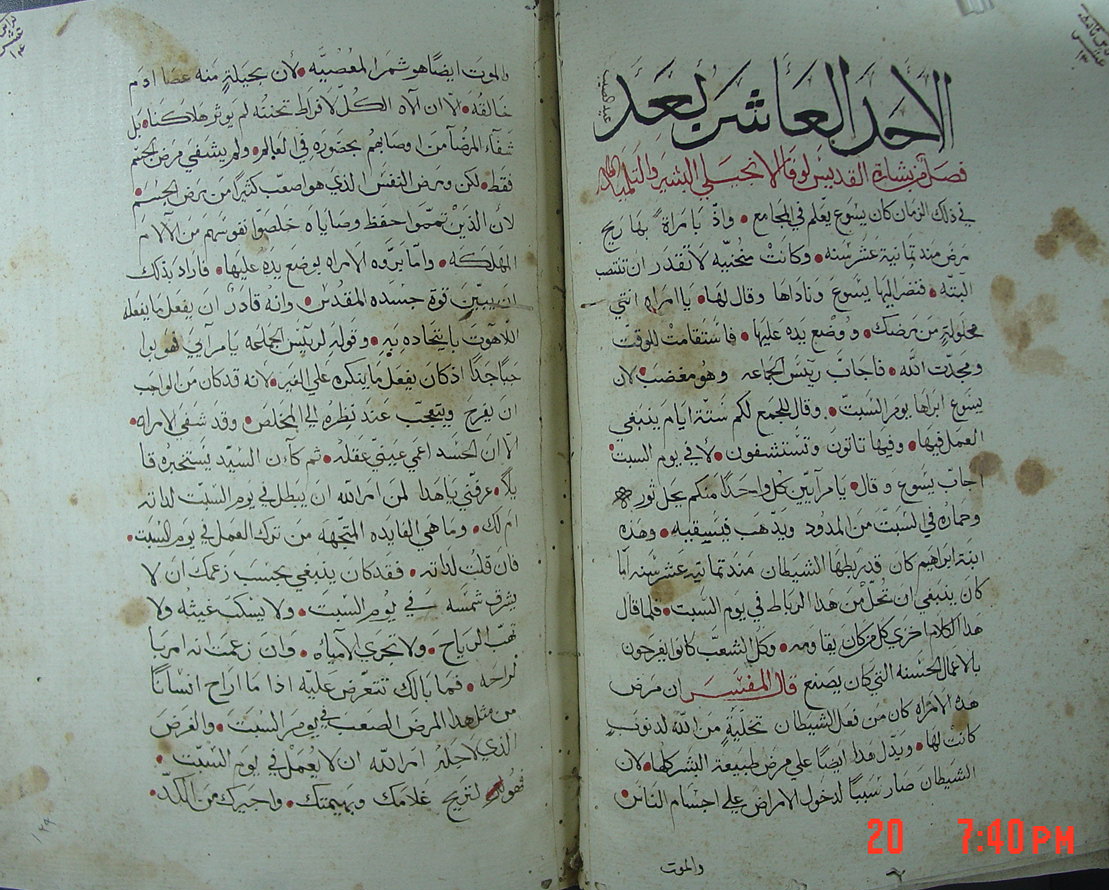 الاحد العاشر بعد
عيد الصليب
فصل من بشاره القديس لوقا الانجيلي البشير والتلميذ
في ذلك الزمان كان يسوع يعلم في المجامع • واذ بامراة بها ريح
مرض منذ ثمانية عشر سنه • وكانت منحنيه لا تقدر ان تنتصب
البته • فنصر اليها يسوع وناداها وقال لها • ياامراه انتي
محلولة من مرضك • ووضع يده عليها • فاستقامت للوقت
ومجدت الله • فاجاب رييس الجماعه وهو مغضب لان
يسوع ابراها يوم السبت • وقال للجمع لكم ستة ايام ينبغي
العمل فيها • وفيها تاتون وتستشفون • لا في يوم السبت
اجاب يسوع وقال • يامرآيين كل واحدا منكم يحل ثوره
وحماره في السبت من المدود ويذهب فيسقيه • وهذه
ابنة ابراهيم كان قد ربطها الشيطان منذ ثمانيه عشر سنه اما
كان ينبغي ان تحل من هذا الرباط في يوم السبت • فلما قال
هذا الكلام اخزي كل من كان يقاومه • وكل الشعب كانوا يفرحون
بالاعمال الحسنه التي كان يصنع قال المفسر ان مرض
هذه الامراه كان من فعل الشيطان تخلية من الله لذنوب
كانت لها • ويدل هذا ايضا علي مرض طبيعة البشر كلها • لان
الشيطان صار سببا لدخول الامراض علي اجسام الناس •
والموت
والموت ايضا هو ثمر المعصيه • لان بحيلة منه عصا ادم
خالقه • الا ان الاه الكل لافراط تحننه لم يوثر هلاكنا • بل
شفآء المرضآ من اوصابهم بحضوره في العالم • ولم يشفي مرض الجسم
فقط • لكن ومرض النفس الذي هو اصعب كثيرا من مرض الجسم •
لان الذين تمموا حفظ وصاياه خلصوا نفوسهم من الآلام
المهلكه • واما بروه الامراه بوضع يده عليها • فاراد بذلك
ان يبين قوة جسده المقدس • وانه قادر ان يفعل ما يفعله
اللاهوت باتحاده به • وقوله لرييس الجماعه يامرآيي فهو
جدا اذ كان يفعل ما ينكره علي الغير • لانه قد كان من الواجب
ان يفرح ويتعجب عند نظره الي المخلص • وقد شفي الامراه •
الا ان الحسد اعمي عيني عقله • ثم كان السيد يستخبره قا
يلا • عرفني ياهذا لمن امر الله ان يبطل في يوم السبت لذاته
ام لك • وما هي الفايده المتجهه من ترك العمل في يوم السبت •
فان قلت لذاته • فقد كان ينبغي بحسب زعمك ان لا
يشرق شمسه في يوم السبت • ولا يسكب غيثه ولا
تهب الرياح • ولا تجري الامياه • وان زعمت انه امر بالراحه
لراحه • فما بالك تتعرض عليه اذا ما اراح انسانا
من مثل هذا المرض الصعب في يوم السبت • والغرض
الذي لاجله امر الله ان لا يعمل في يوم السبت •
فهو لتريح غلامك وبهيمتك • واجيرك من الكد •
١٢٩